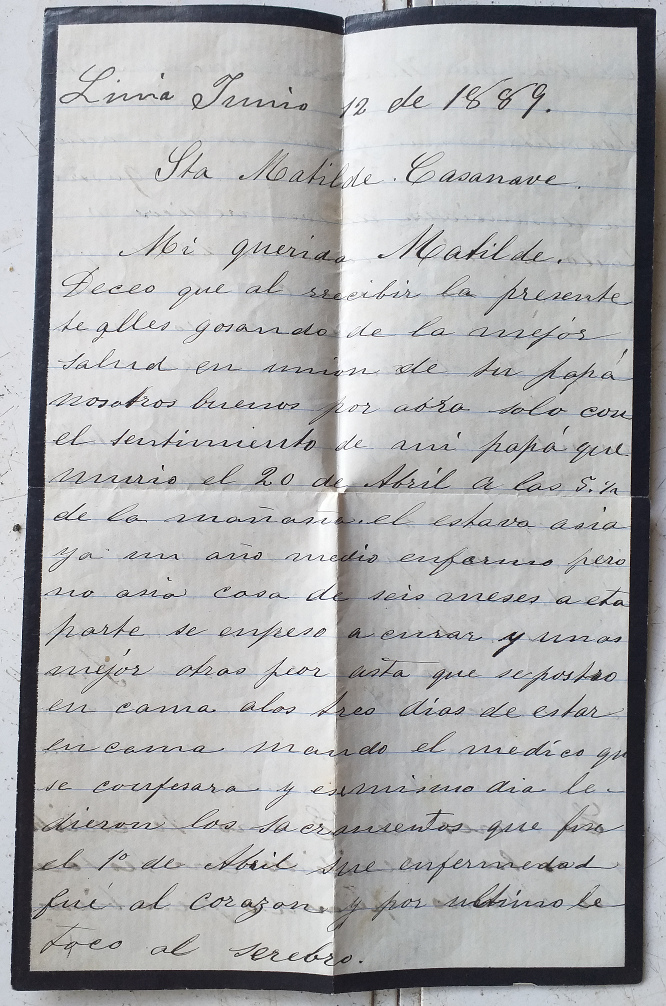 Lima Junio 12 de 1889.
Sta Matilde Casanave.
Mi querida Matilde.
Deceo que al recibir la presente
te alles gosando de la mejor
salud en union de tu papá
nosotros buenos por aora solo con
el sentimiento de mi papá que
murio el 20 de Abril a las 5.½
de la mañana el estava asia
ya un año medio enfermo pero
no asia cosa de seis meses a eta
parte se enpeso a curar y unas
mejor otras peor asta que se postro
en cama alos tres dias de estar
en cama mando el medico qu
se confesara y es mismo dia le
dieron los sacramentos que fue
el 1º de Abril sue enfermedad
fué al corazon y por ultimo le
toco al serebro.